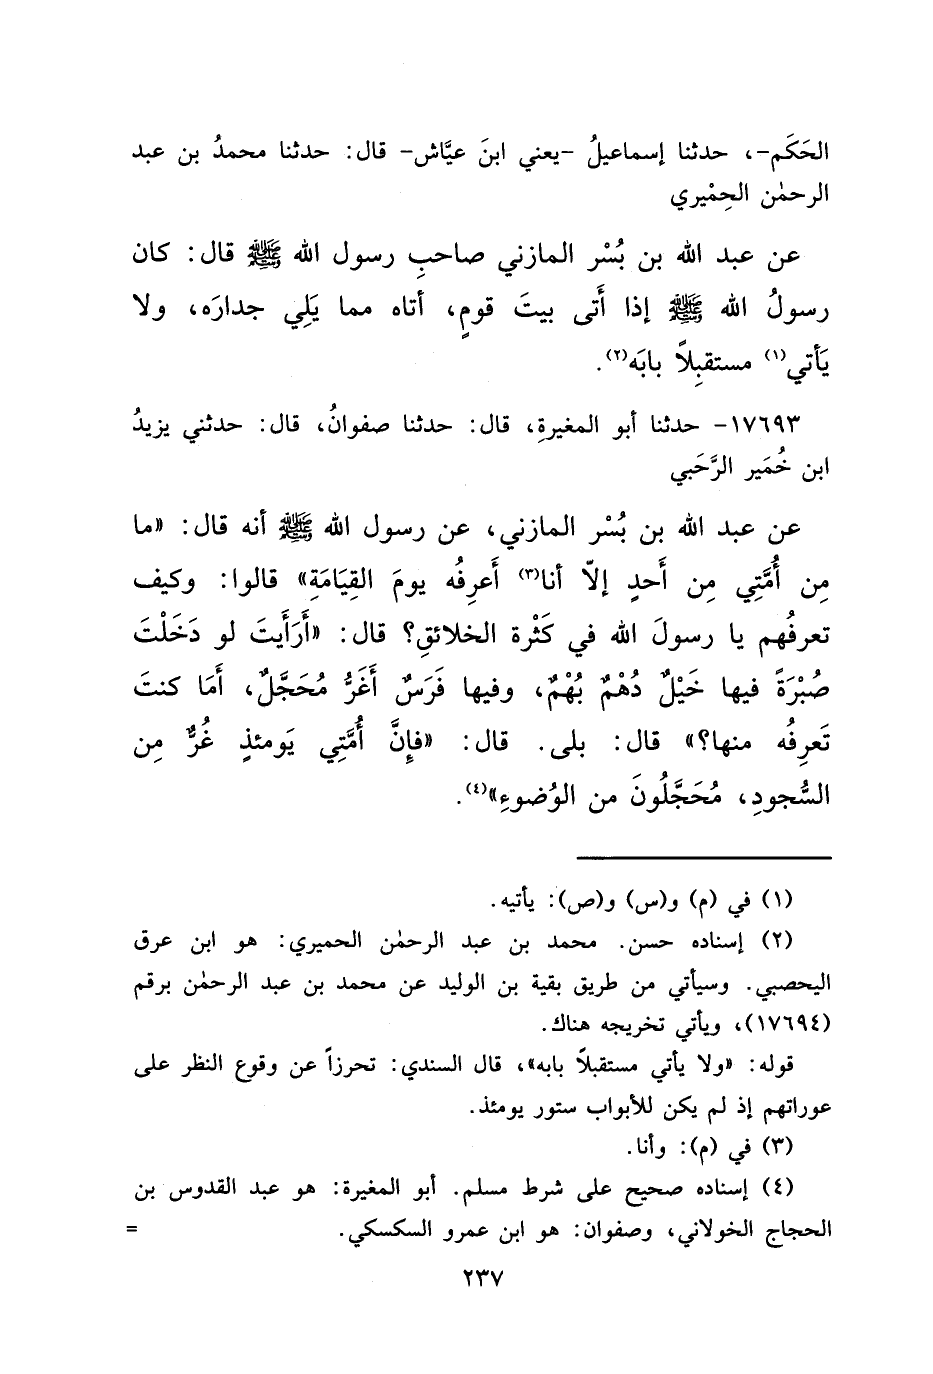 الحَكَم-، حدثنا إسماعيلُ -يعني ابنَ عيَّاش- قال: حدثنا محمدُ بن عبد
الرحمٰن الحِمْيري
عن عبد الله بن بُسْر المازني صاحبِ رسول الله ﷺ قال: كان
رسولُ الله ﷺ إذا أَتى بيتَ قومٍ، أتاه مما يَلِي جدارَه، ولا
يَأتي(١) مستقبِلاً بابَه(٢).
١٧٦٩٣- حدثنا أبو المغيرةِ، قال: حدثنا صفوانُ، قال: حدثني يزيدُ
ابن خُمَير الرَّحَبي
عن عبد الله بن بُسْر المازني، عن رسول الله ﷺ أنه قال: «ما
مِن أُمَّتِي مِن أَحدٍ إلاّ أنا(٣) أَعرِفُه يومَ القِيَامَةِ» قالوا: وكيف
تعرفُهم يا رسولَ الله في كَثْرة الخلائقِ؟ قال: «أَرَأَيتَ لو دَخَلْتَ
صُبْرَةً فيها خَيْلٌ دُهْمٌ بُهْمٌ، وفيها فَرَسٌ أَغَرُّ مُحَجَّلٌ، أَمَا كنتَ
تَعرِفُه منها؟» قال: بلى. قال: «فإِنَّ أُمَّتِي يَومئذٍ غُرٌّ مِن
السُّجودِ، مُحَجَّلُونَ من الوُضوءِ»(٤).
(١) في (م) و(س) و(ص): يأتيه.
(٢) إسناده حسن. محمد بن عبد الرحمٰن الحميري: هو ابن عرق
اليحصبي. وسيأتي من طريق بقية بن الوليد عن محمد بن عبد الرحمٰن برقم
(١٧٦٩٤)، ويأتي تخريجه هناك.
قوله: «ولا يأتي مستقبلاً بابه»، قال السندي: تحرزاً عن وقوع النظر على
عوراتهم إذ لم يكن للأبواب ستور يومئذ.
(٣) في (م): وأنا.
(٤) إسناده صحيح على شرط مسلم. أبو المغيرة: هو عبد القدوس بن
الحجاج الخولاني، وصفوان: هو ابن عمرو السكسكي. =
٢٣٧